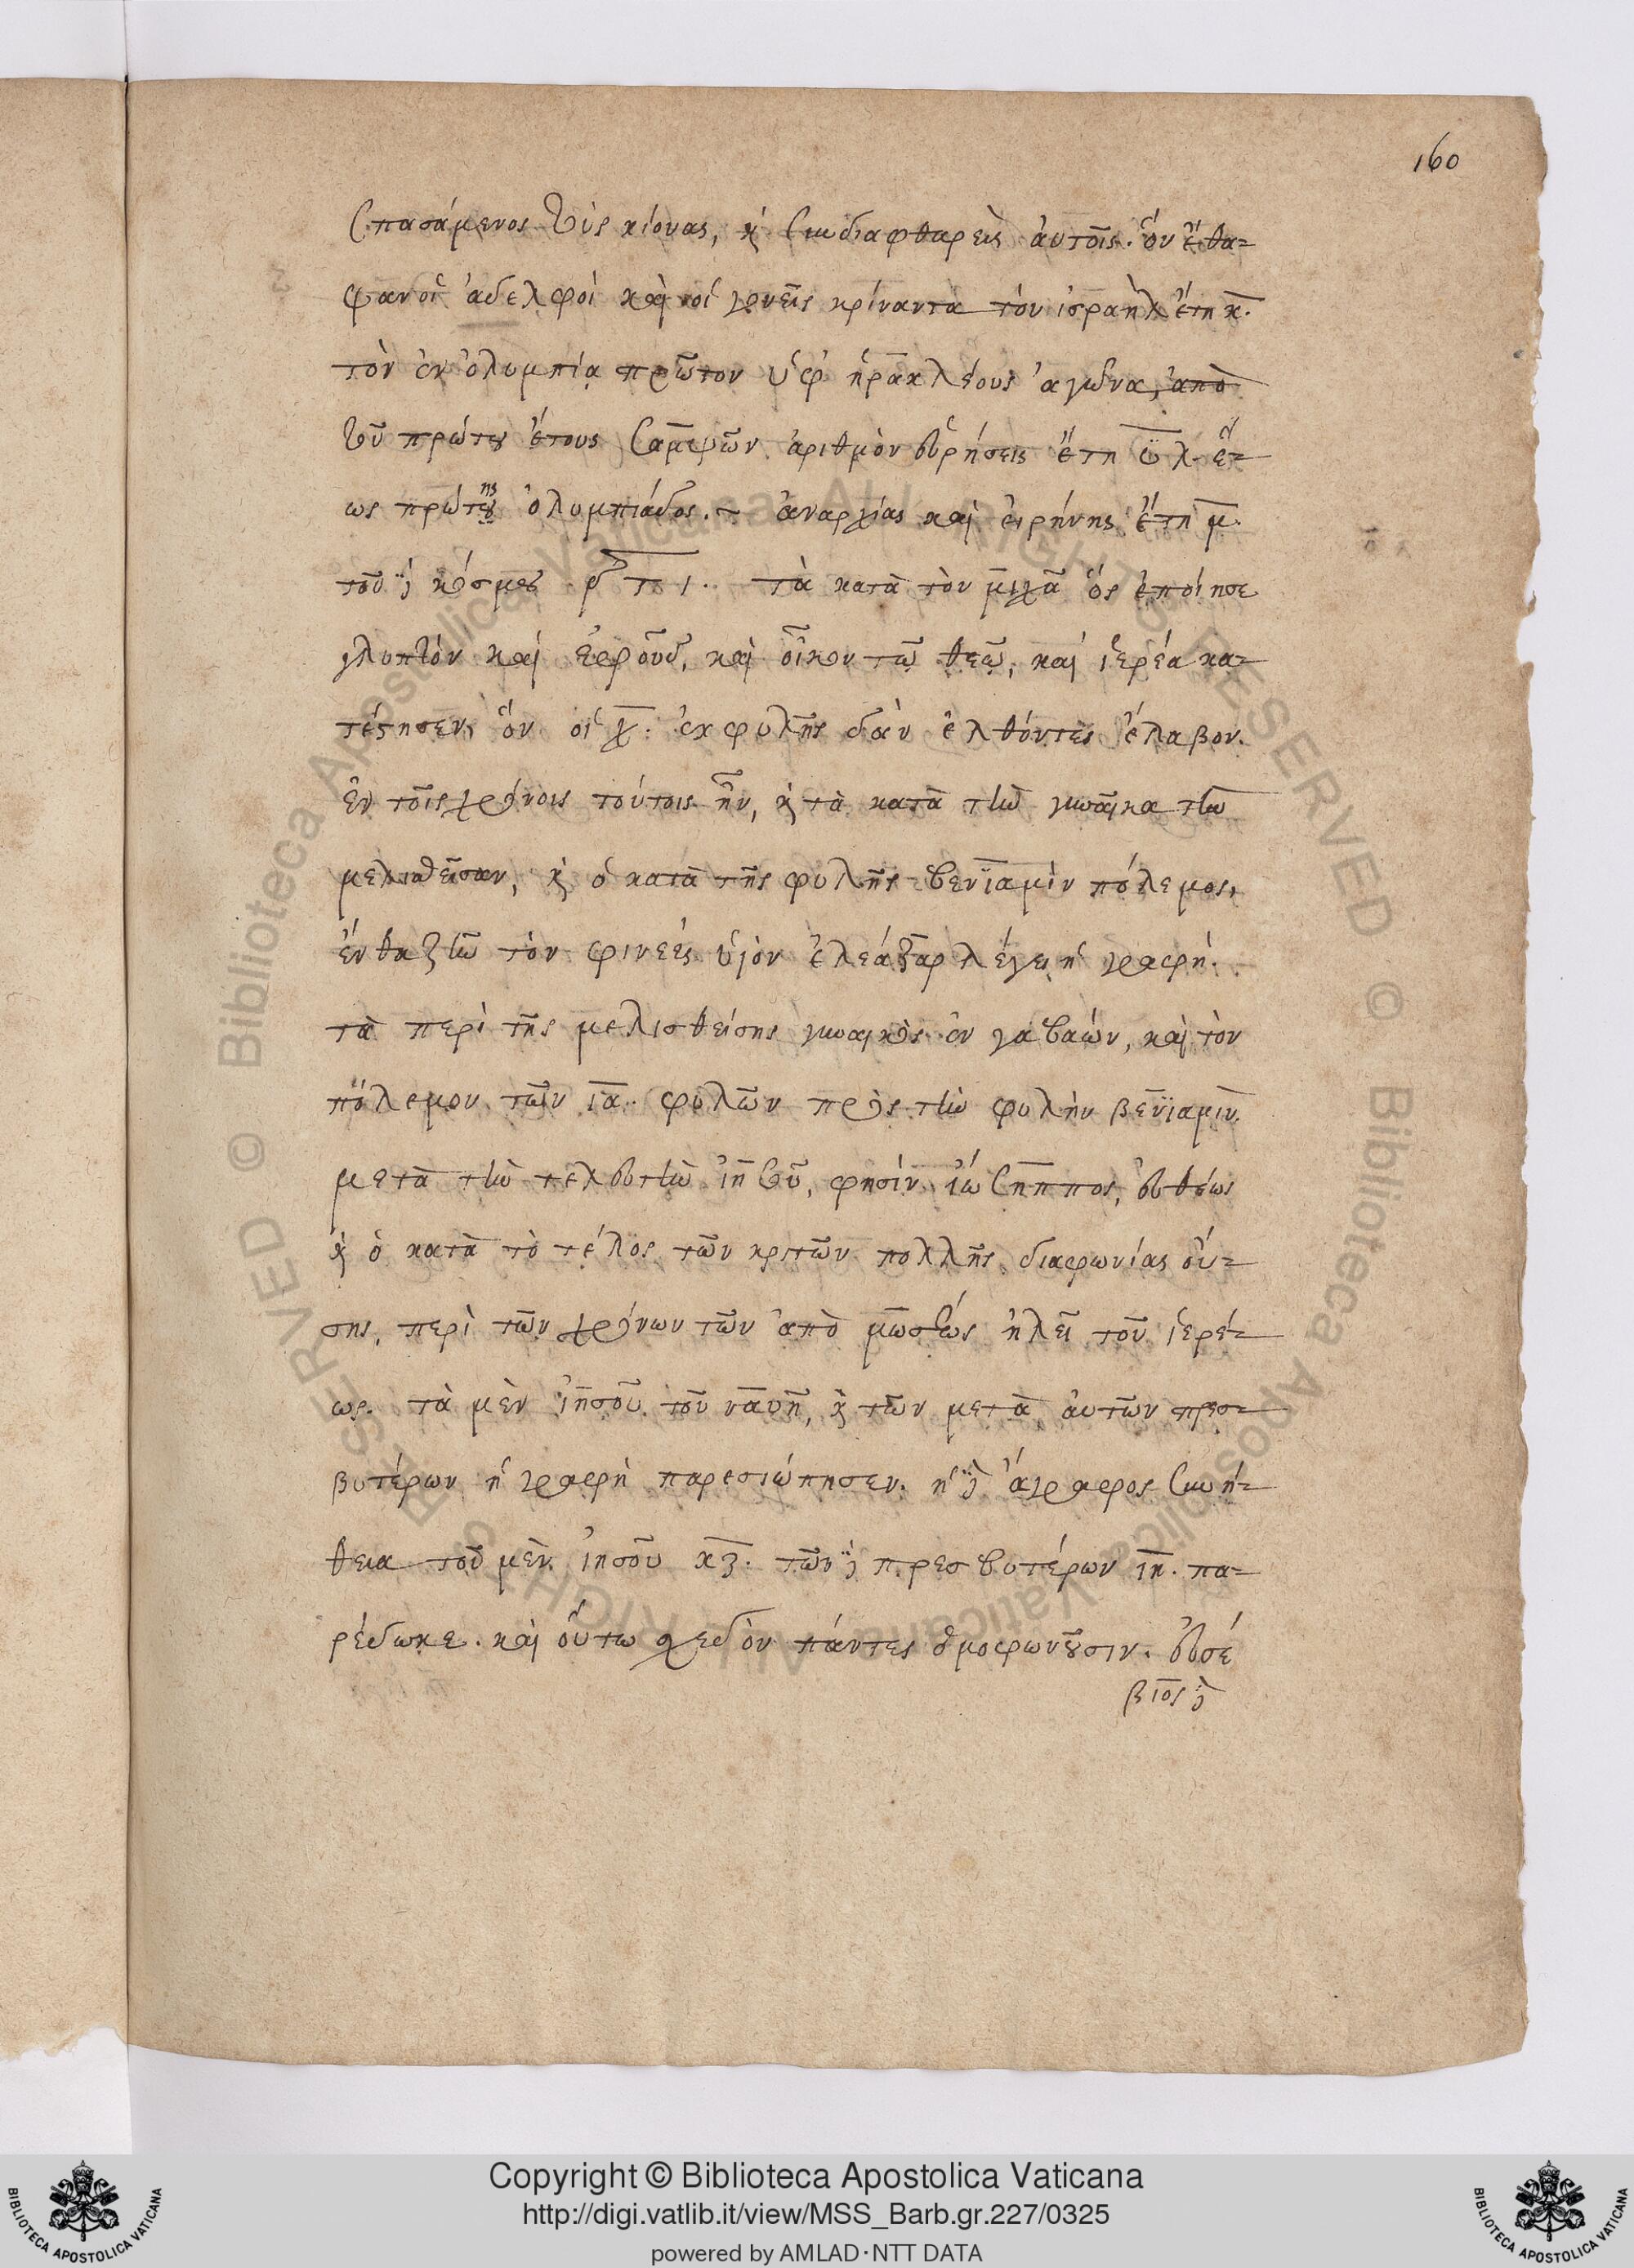 160
σπασάμενος τοὺς κίονας, κὶ συνδιαφθαρεὶς ἀυτοῖς. ὃν ἔθα-
ψαν οἱ ἀδελφοὶ καὶ οἱ γονεῖς κρίναντα τὸν ἰσραὴλ ἔτη κ.
τὸν ἐν ὀλυμπία πρῶτον ὑφ ἡρακλέους ἀγῶνα, ἀπὸ
τοῦ πρώτου ἔτους σαμψῶν ἀριθμὸν εὑρήσεις ἔτη υλ ἕ-
ως πρώτης ὀλυμπιάδος. ~ ἀναρχίας καὶ ἐιρήνης ἔτη μ.
τοῦ δὲ κόσμου τὰ κατὰ τὸν μιχᾶ ὃς ἐποίησε
γλυπτὸν καὶ ἐφοὺδ, καὶ οἶκον τῶ θεῶ, καὶ ἱερέα κα-
τέστησεν, ὃν οἱ χ. ἐκ φυλῆς δὰν ἐλθόντες ἔλαβον.
ἐν τοῖς χρόνοις τούτοις ἦν, κὶ τὰ κατὰ τὴν γυναῖκα τὴν
μελισθεῖσαν, κὶ ὁ κατὰ τῆς φυλῆς βενϊαμὶν πόλεμος,
ἔνθα ζῆν τὸν φινεὲς ὑιὸν ἐλεάζαρ λέγει ἡ γραφή.
τὰ περὶ τῆς μελισθείσης γυναικὸς ἐν γαβαών, καὶ τὸν
πόλεμον τῶν ια φυλῶν πρὸς τὴν φυλὴν βενϊαμίν.
μετὰ τὴν τελευτὴν ἰησοῦ, φησὶν ἰώσηππος, ἐυθέως
κὶ ὁ κατὰ τὸ τέλος τῶν κριτῶν πολλῆς διαφωνίας ὄυ-
σης, περὶ τῶν χρόνων τῶν ἀπὸ μωσέως ἠλεῖ τοῦ ἱερέ-
ως. τὰ μὲν ἰησοῦ τοῦ ναυῆ, κὶ τῶν μετὰ ἀυτῶν πρεσ-
βυτέρων ἡ γραφὴ παρεσιώπησεν. ἡ δὲ ἄγραφος συνή-
θεια τοῦ μὲν ἰησοῦ κζ. τῶν δὲ πρεσβυτέρων ιη. πα-
ρέδωκε. καὶ οὕτω σχεδὸν πάντες ὁμοφωνοῦσιν. ἐυσέ
βιος δὲ
Copyright © Biblioteca Apostolica Vaticana
http://digi.vatlib.it/view/MSS_Barb.gr.227/0325
powered by AMLAD·NTT DATA